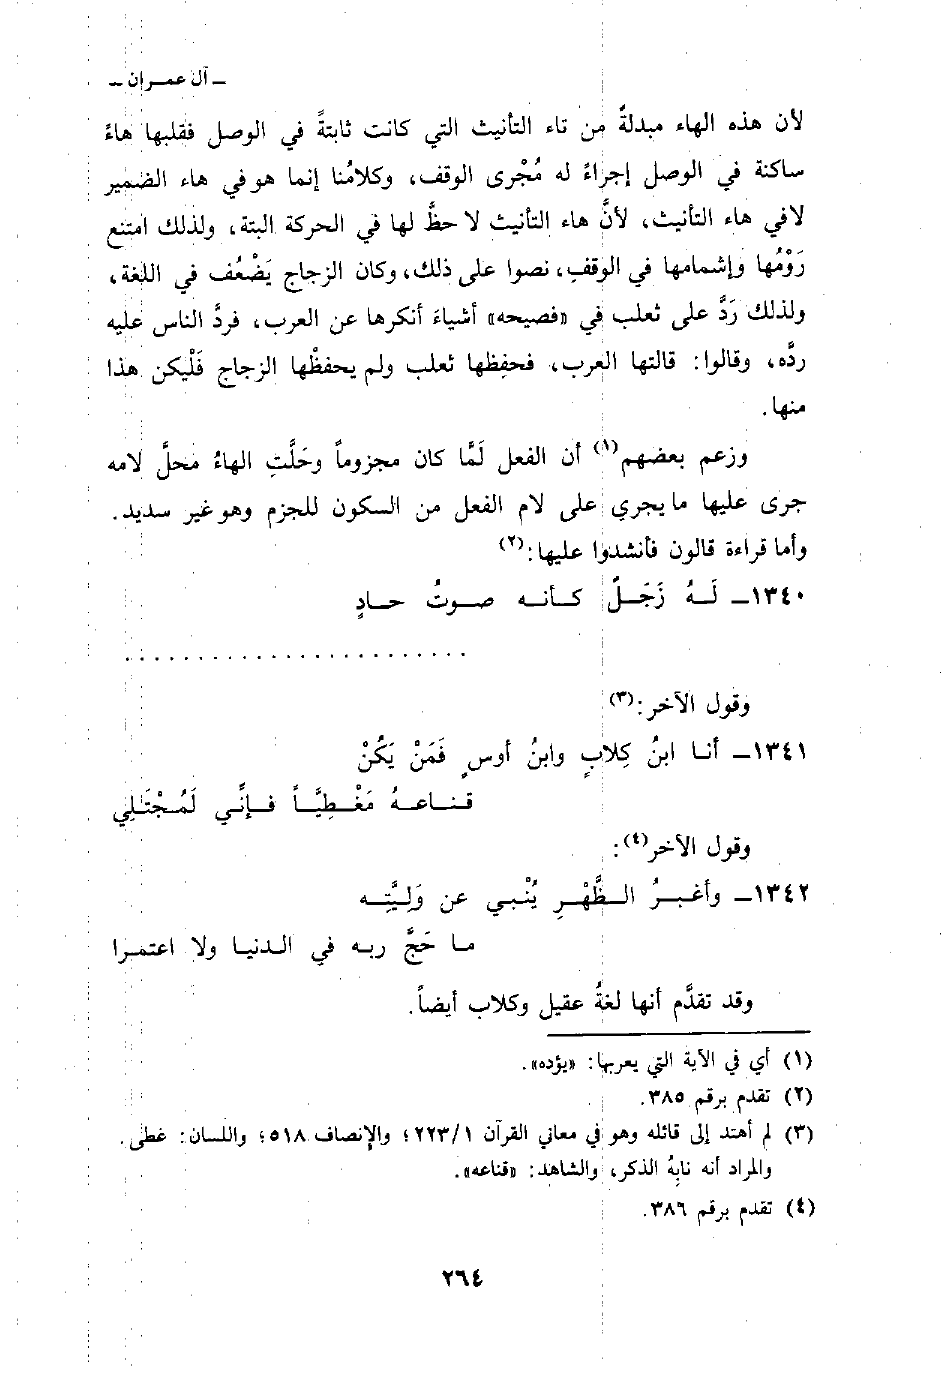 ـ آل عمـران ـ
لأن هذه الهاء مبدلةٌ من تاء التأنيث التي كانت ثابتةً في الوصل فقلبها هاءً
ساكنة في الوصل إجراءً له مُجْرى الوقف، وكلامُنا إنما هو في هاء الضمير
لا في هاء التأنيث، لأنَّ هاء التأنيث لا حظَّ لها في الحركة البتة، ولذلك امتنع
رَوْمُها وإشمامها في الوقفِ، نصوا على ذلك، وكان الزجاج يَضْعُف في اللغة،
ولذلك رَدَّ على ثعلب في «فصيحه» أشياءَ أنكرها عن العرب، فردَّ الناس عليه
ردَّه، وقالوا: قالتها العرب، فحفِظها ثعلب ولم يحفظْها الزجاج فَلْيكن هذا
منها.
وزعم بعضهم(١) أن الفعل لَمَّا كان مجزوماً وحَلَّتِ الهاءُ محلَّ لامه
جرى عليها ما يجري على لام الفعل من السكون للجزم وهو غير سديد.
وأما قراءة قالون فأنشدوا عليها:(٢)
١٣٤٠ـ لَـهُ زَجَـلٌ كـأنـه صـوتُ حـادٍ
. . . . . . . . . . . . . . . . . . . . . . . .
وقول الآخر:(٣)
١٣٤١ـ أنـا ابنُ كِلابٍ وابنُ أوسٍ فَمَنْ يَكُنْ
قنـاعـهُ مَغْـطِيَّـاً فـإنَّـي لَمُـجْتَـلِي
وقول الآخر(٤):
١٣٤٢ـ وأغبـرُ الـظَّهْـرِ يُنْبـي عن وَلِيَّتِـه
مـا حَجَّ ربـه في الـدنيـا ولا اعتمـرا
وقد تقدَّم أنها لغةُ عقيل وكلاب أيضاً.
(١) أي في الآية التي يعربها: «يؤده».
(٢) تقدم برقم ٣٨٥.
(٣) لم أهتد إلى قائله وهو في معاني القرآن ٢٢٣/١؛ والإنصاف ٥١٨؛ واللسان: غطى.
والمراد أنه نابِهُ الذكر، والشاهد: «قناعه».
(٤) تقدم برقم ٣٨٦.
٢٦٤